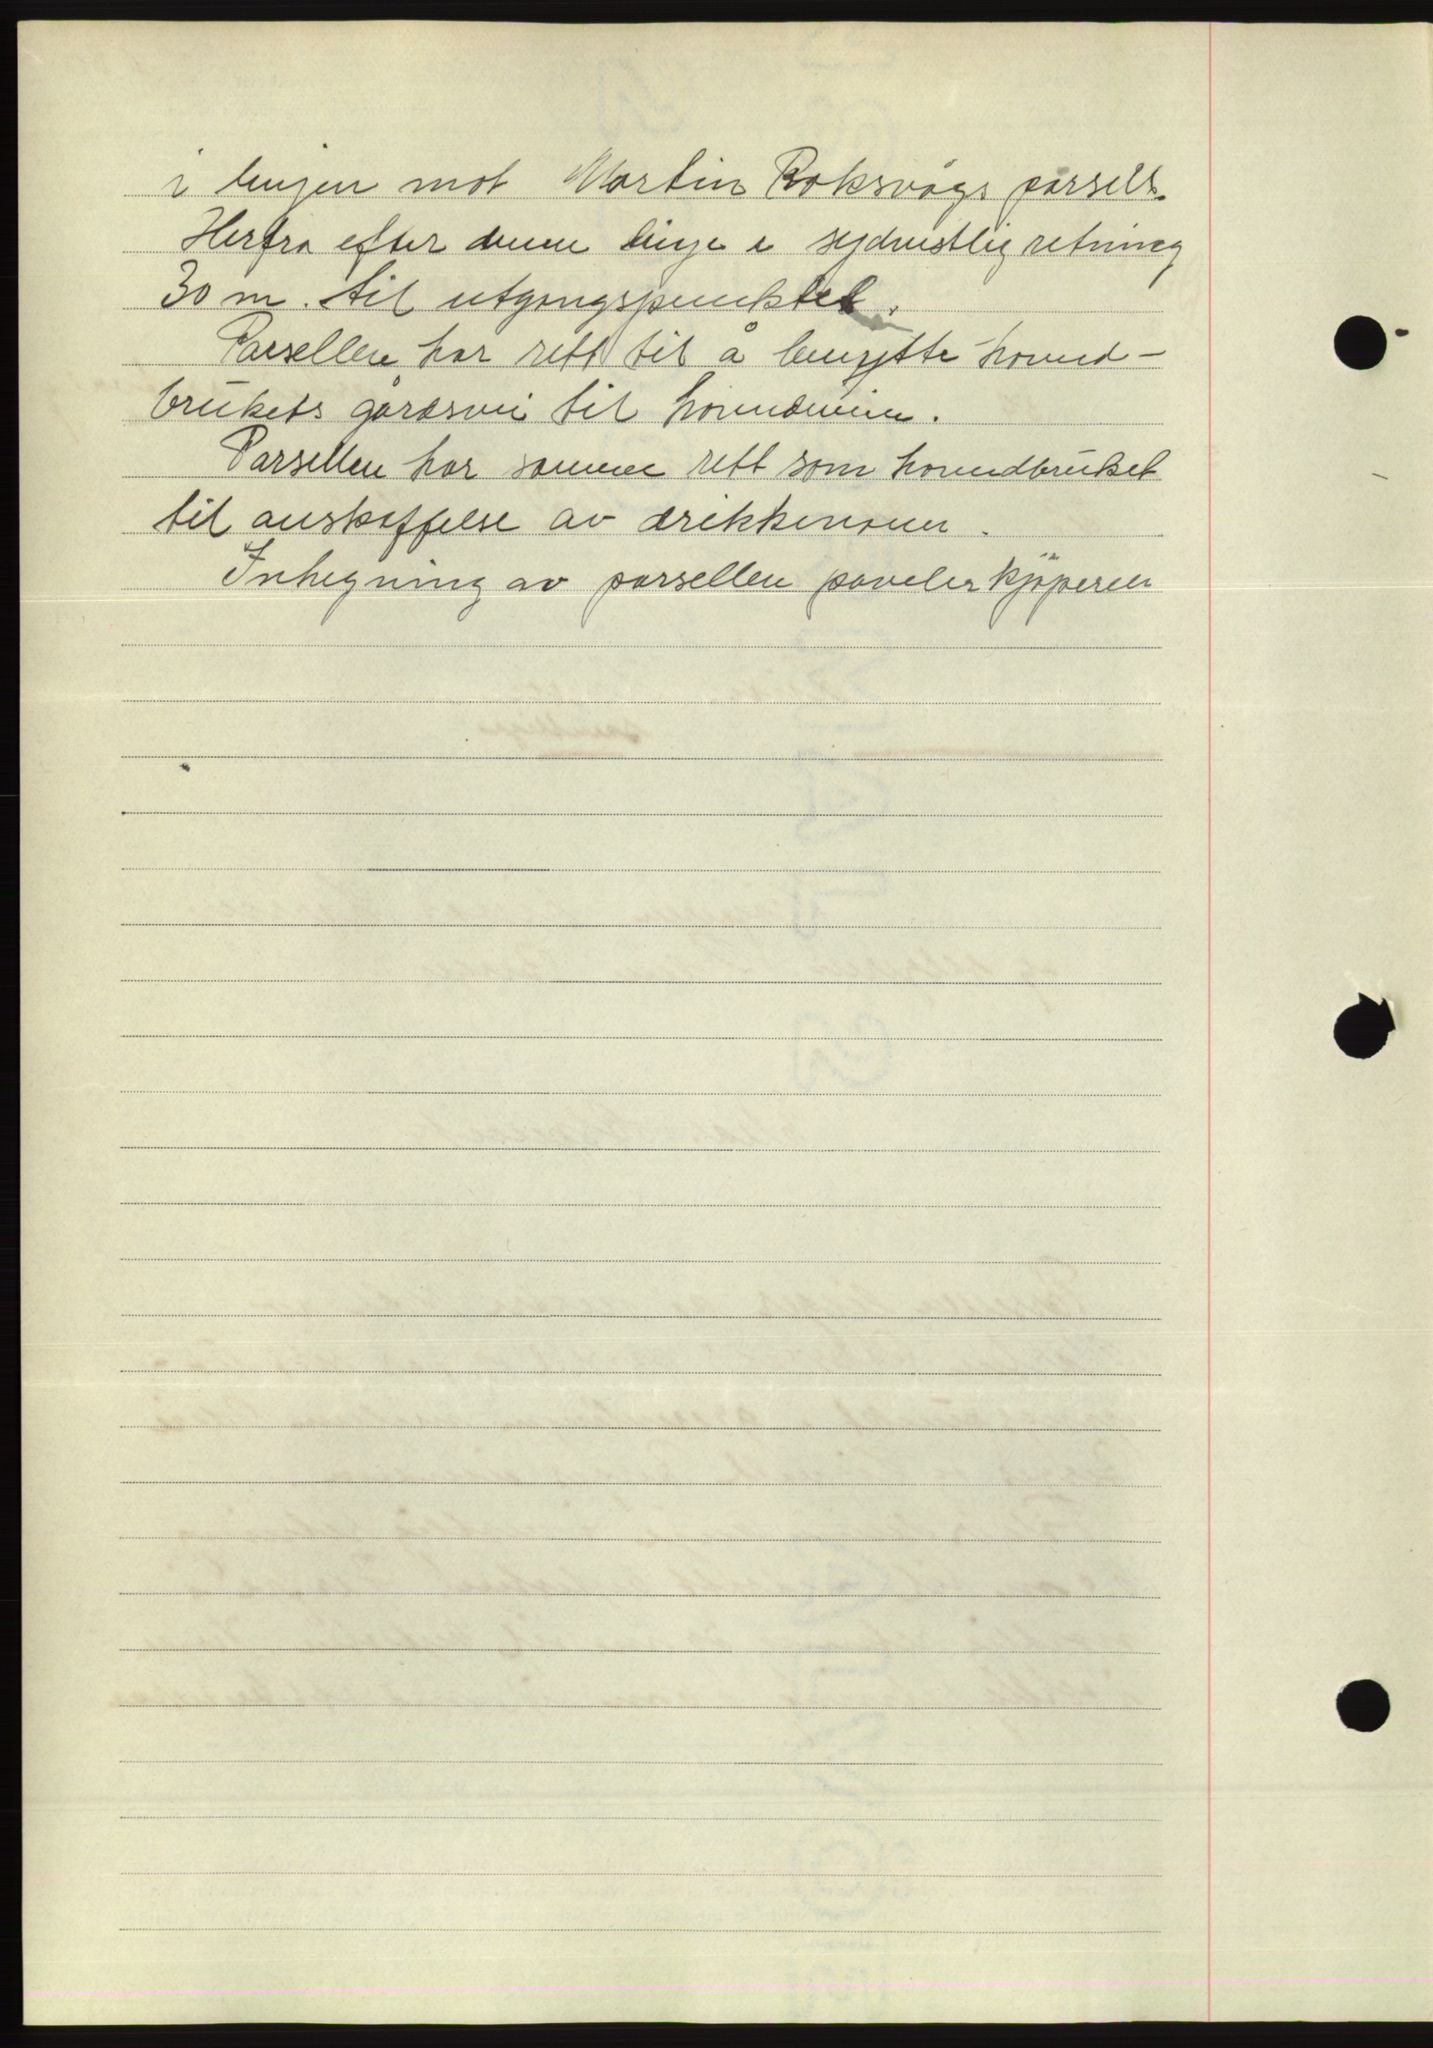 i linjen mot Martin Roksvågs parsell.
Herfra efter denne linje i sydvestlig retning
30 m. til utgangspunktet.
Parsellen har rett til å benytte hovud-
brukets gårdsvei til hovudveien.
Parsellen har samme rett som hovudbruket
til anskaffelse av drikkevann.
Inhegning av parsellen paveler kjøperen